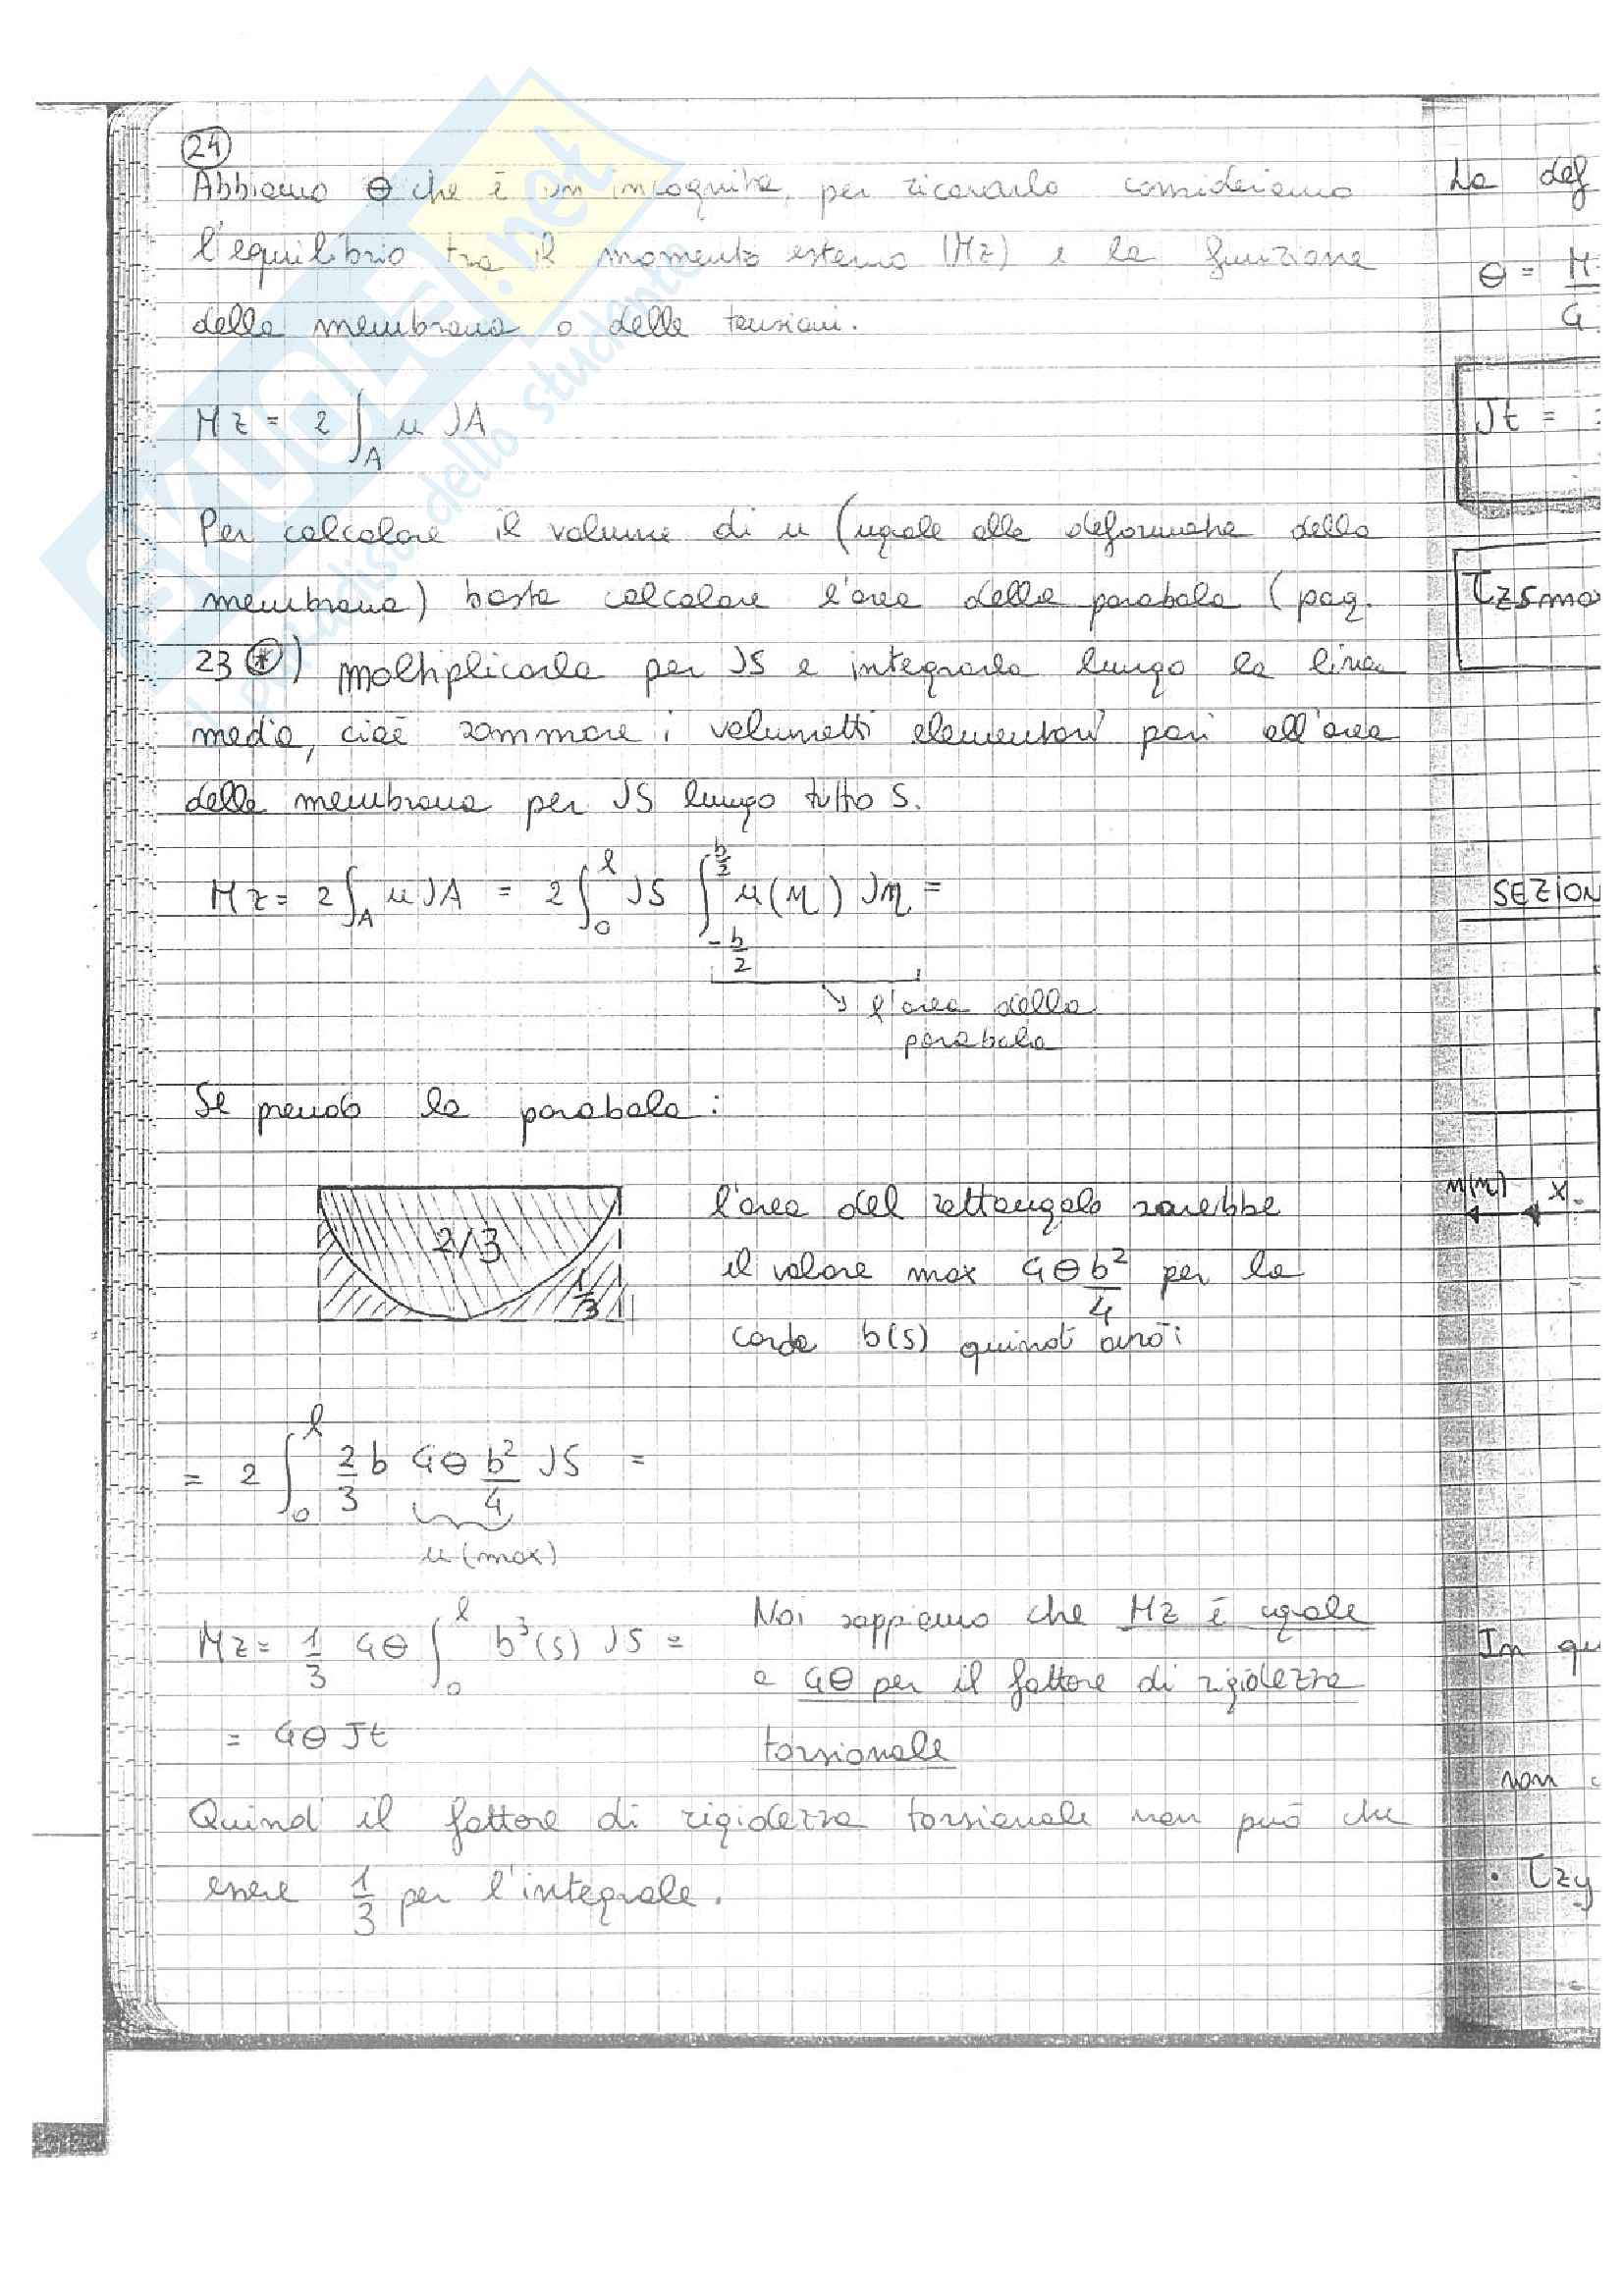 24
Abbiamo θ che è un incognita, per ricavarlo consideriamo
l'equilibrio tra il momento esterno (Mz) e la funzione
della membrana o delle tensioni.
Mz = 2 ∫_A u dA
Per calcolare il volume di u (uguale alla deformata della
membrana) basta calcolare l'area della parabola (pag.
23 *) moltiplicarla per dS e integrarla lungo la linea
media, cioè sommare i volumetti elementari pari all'area
della membrana per dS lungo tutto S.
Mz = 2 ∫_A u dA = 2 ∫_0^l dS ∫_{-b/2}^{b/2} u(η) dη =
↘ l'area della
parabola
Se prendo la parabola:
2/3
1/3
l'area del rettangolo sarebbe
il valore max Gθ b²/4 per la
corda b(s) quindi avrò:
= 2 ∫_0^l 2/3 b Gθ b²/4 dS =
u(max)
Mz = 1/3 Gθ ∫_0^l b³(s) dS =
= Gθ Jt
Noi sappiamo che Mz è uguale
a Gθ per il fattore di rigidezza
torsionale
Quindi il fattore di rigidezza torsionale non può che
essere 1/3 per l'integrale.
La def
θ = M
G
Jt =
τzsma
SEZION
u(η) x
In qu
non
· τzy
SKUOLA.net
il paradiso dello studente